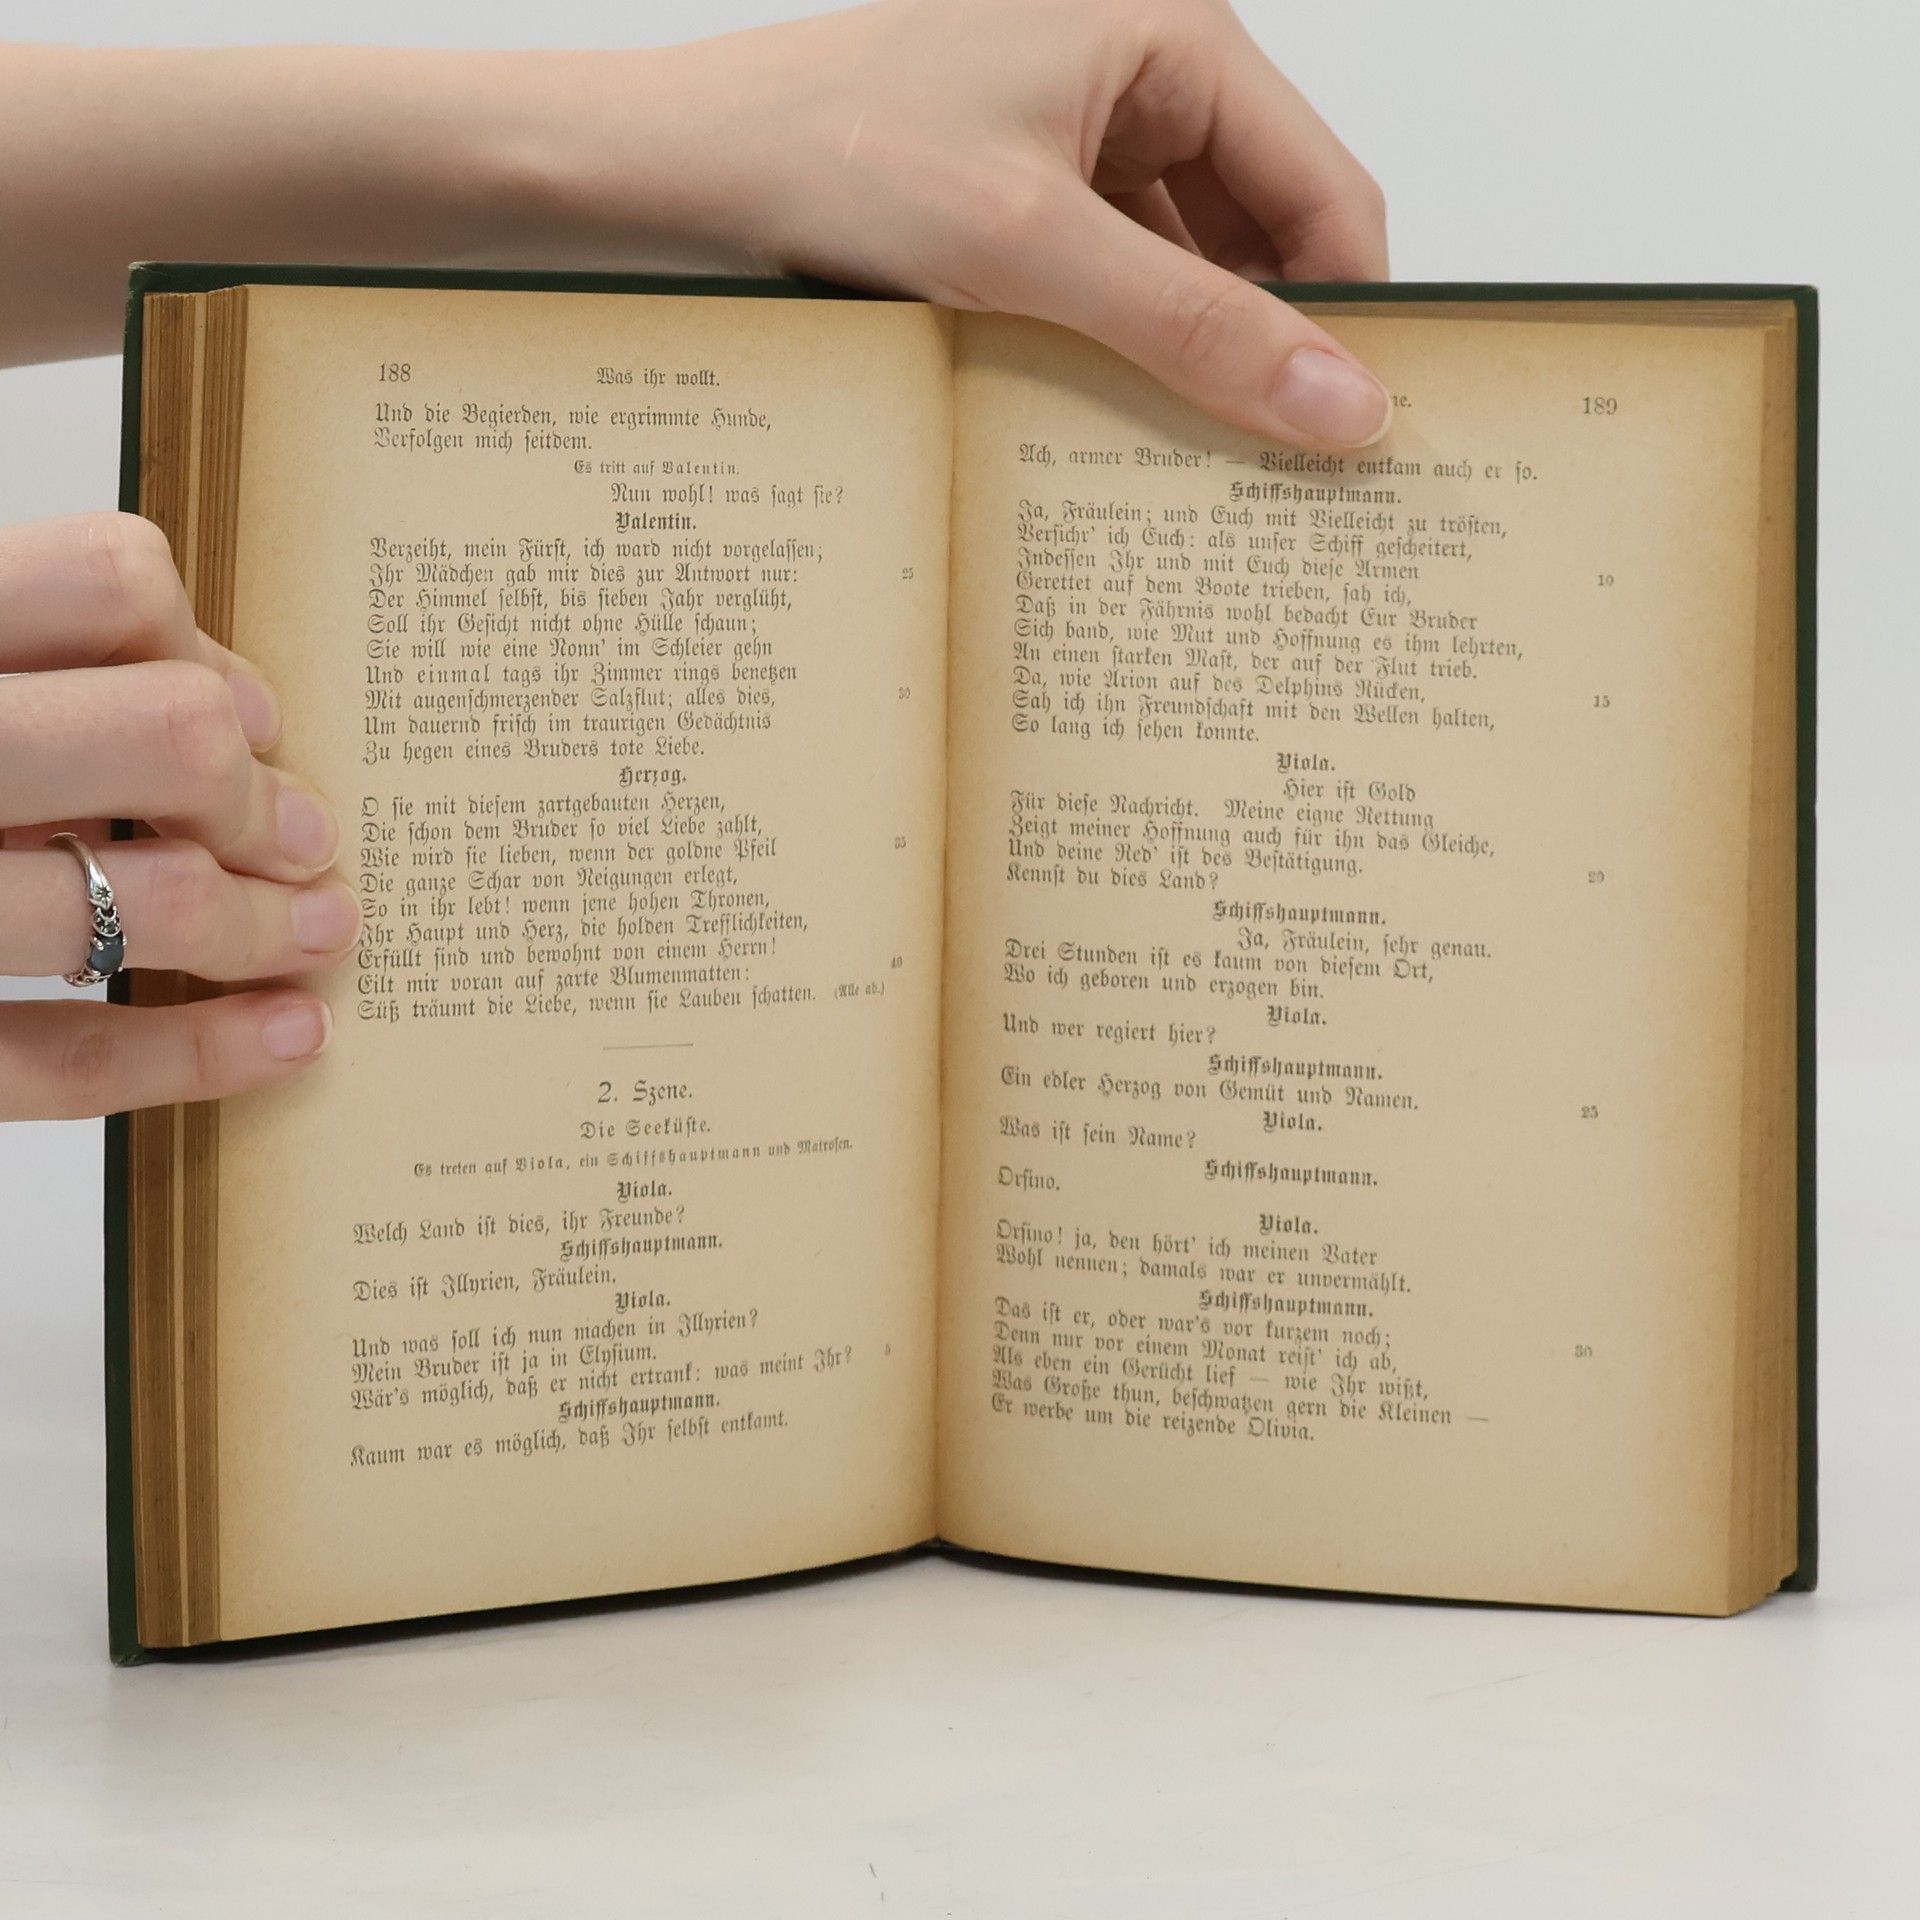 188
Was ihr wollt.
Und die Begierden, wie ergrimmte Hunde,
Verfolgen mich ſeitdem.
Es tritt auf Valentin.
Nun wohl! was ſagt ſie?
Valentin.
Verzeiht, mein Fürſt, ich ward nicht vorgelaſſen;
Ihr Mädchen gab mir dies zur Antwort nur: 25
Der Himmel ſelbſt, bis ſieben Jahr verglüht,
Soll ihr Geſicht nicht ohne Hülle ſchaun;
Sie will wie eine Nonn' im Schleier gehn
Und einmal tags ihr Zimmer rings benetzen
Mit augenſchmerzender Salzflut; alles dies, 30
Um dauernd friſch im traurigen Gedächtnis
Zu hegen eines Bruders tote Liebe.
Herzog.
O ſie mit dieſem zartgebauten Herzen,
Die ſchon dem Bruder ſo viel Liebe zahlt,
Wie wird ſie lieben, wenn der goldne Pfeil 35
Die ganze Schar von Neigungen erlegt,
So in ihr lebt! wenn jene hohen Thronen,
Ihr Haupt und Herz, die holden Trefflichkeiten,
Erfüllt ſind und bewohnt von einem Herrn!
Eilt mir voran auf zarte Blumenmatten: 40
Süß träumt die Liebe, wenn ſie Lauben ſchatten. (Alle ab.)
2. Szene.
Die Seeküſte.
Es treten auf Viola, ein Schiffshauptmann und Matroſen.
Viola.
Welch Land iſt dies, ihr Freunde?
Schiffshauptmann.
Dies iſt Illyrien, Fräulein.
Viola.
Und was ſoll ich nun machen in Illyrien?
Mein Bruder iſt ja in Elyſium.
Wär's möglich, daß er nicht ertrank: was meint Ihr? 5
Schiffshauptmann.
Kaum war es möglich, daß Ihr ſelbſt entkamt.
189
Ach, armer Bruder! — Vielleicht entkam auch er ſo.
Schiffshauptmann.
Ja, Fräulein; und Euch mit Vielleicht zu tröſten,
Verſichr' ich Euch: als unſer Schiff geſcheitert,
Indeſſen Ihr und mit Euch dieſe Armen
Gerettet auf dem Boote trieben, ſah ich, 10
Daß in der Fährnis wohl bedacht Eur Bruder
Sich band, wie Mut und Hoffnung es ihm lehrten,
An einen ſtarken Maſt, der auf der Flut trieb.
Da, wie Arion auf des Delphins Rücken,
Sah ich ihn Freundſchaft mit den Wellen halten, 15
So lang ich ſehen konnte.
Viola.
Hier iſt Gold
Für dieſe Nachricht. Meine eigne Rettung
Zeigt meiner Hoffnung auch für ihn das Gleiche,
Und deine Red' iſt des Beſtätigung.
Kennſt du dies Land? 20
Schiffshauptmann.
Ja, Fräulein, ſehr genau.
Drei Stunden iſt es kaum von dieſem Ort,
Wo ich geboren und erzogen bin.
Viola.
Und wer regiert hier?
Schiffshauptmann.
Ein edler Herzog von Gemüt und Namen.
Viola. 25
Was iſt ſein Name?
Schiffshauptmann.
Orſino.
Viola.
Orſino! ja, den hört' ich meinen Vater
Wohl nennen; damals war er unvermählt.
Schiffshauptmann.
Das iſt er, oder war's vor kurzem noch;
Denn nur vor einem Monat reiſt' ich ab, 30
Als eben ein Gerücht lief — wie Ihr wißt,
Was Große thun, beſchwatzen gern die Kleinen —
Er werbe um die reizende Olivia.